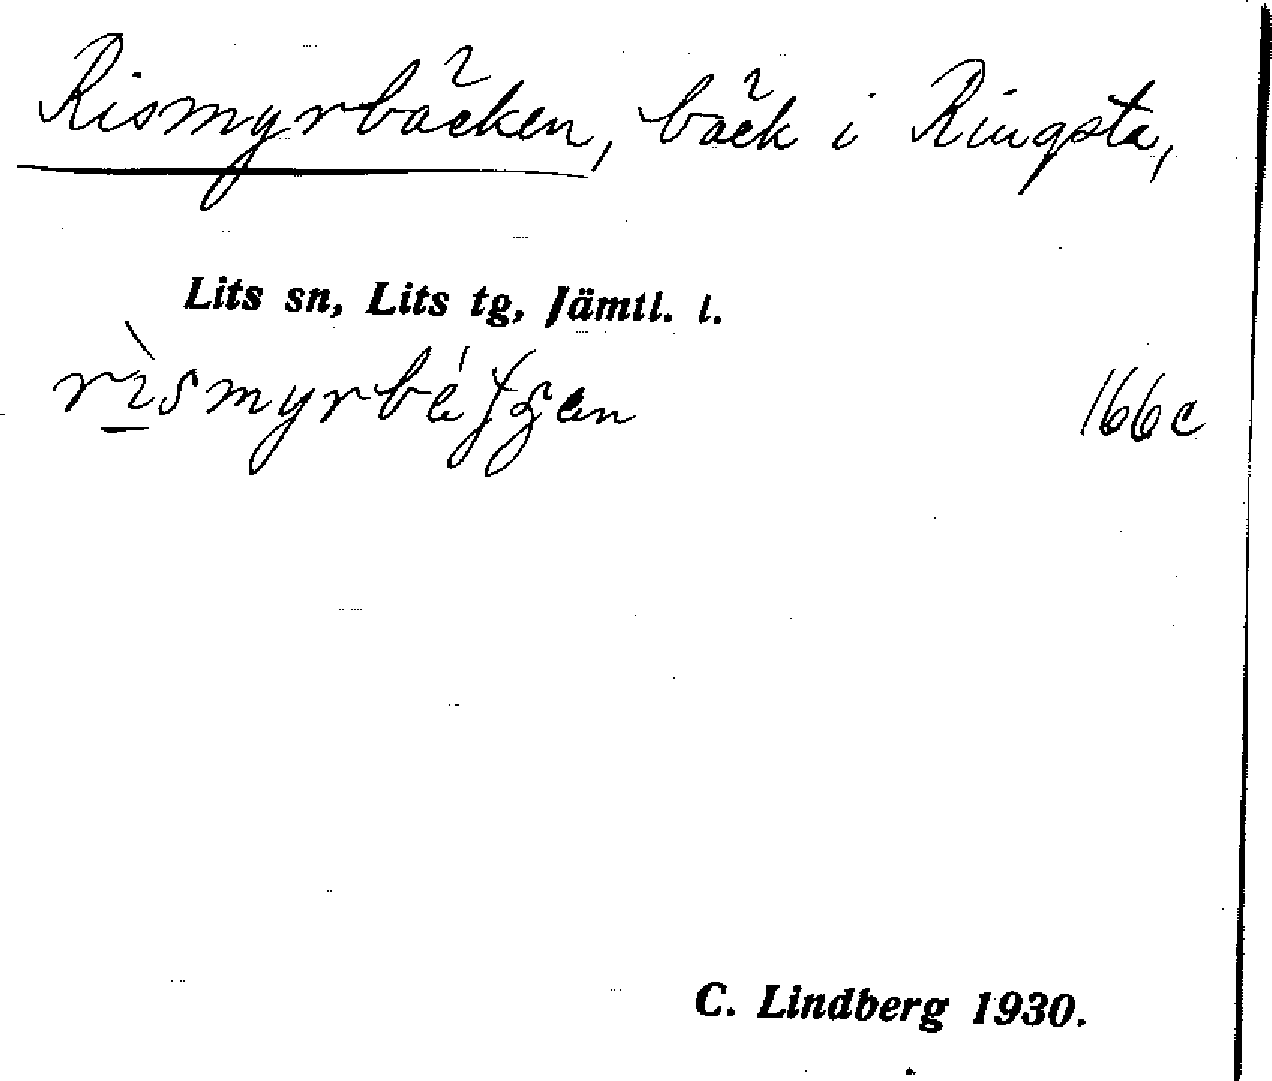 Rismyrbäcken, bäck i Ringsta,
Lits sn, Lits tg, Jämtl. l.
166c
C. Lindberg 1930.